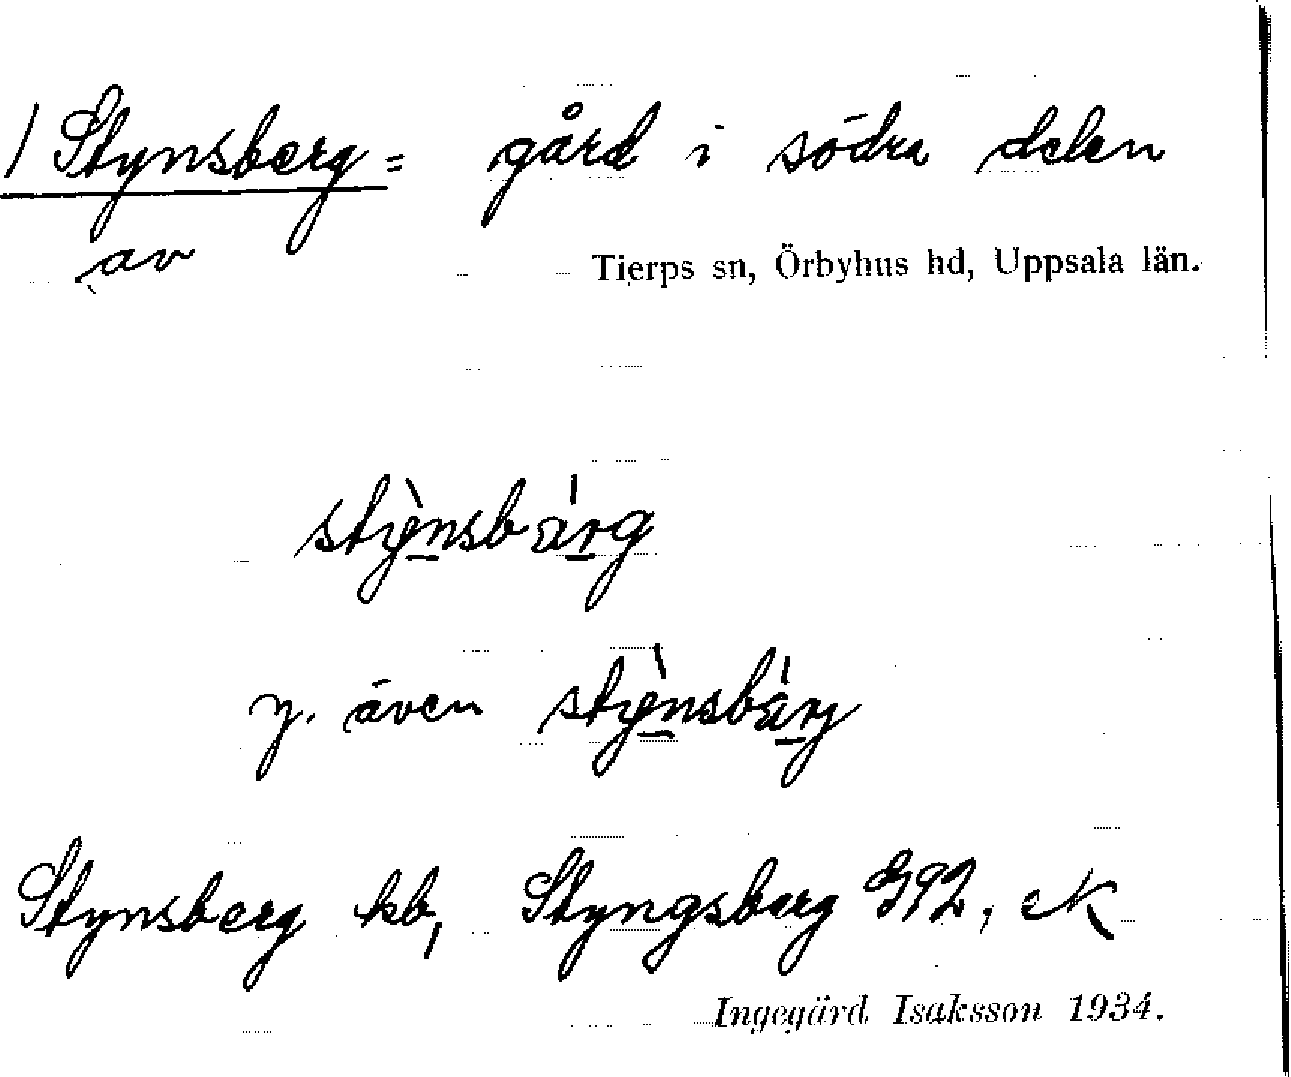 / Stynsberg = gård i södra delen
av Tierps sn, Örbyhus hd, Uppsala län.
stỳnsbárg
y. även stỳnsbárj
Stynsberg kb, Styngsberg G92, eK
Ingegärd Isaksson 1934.